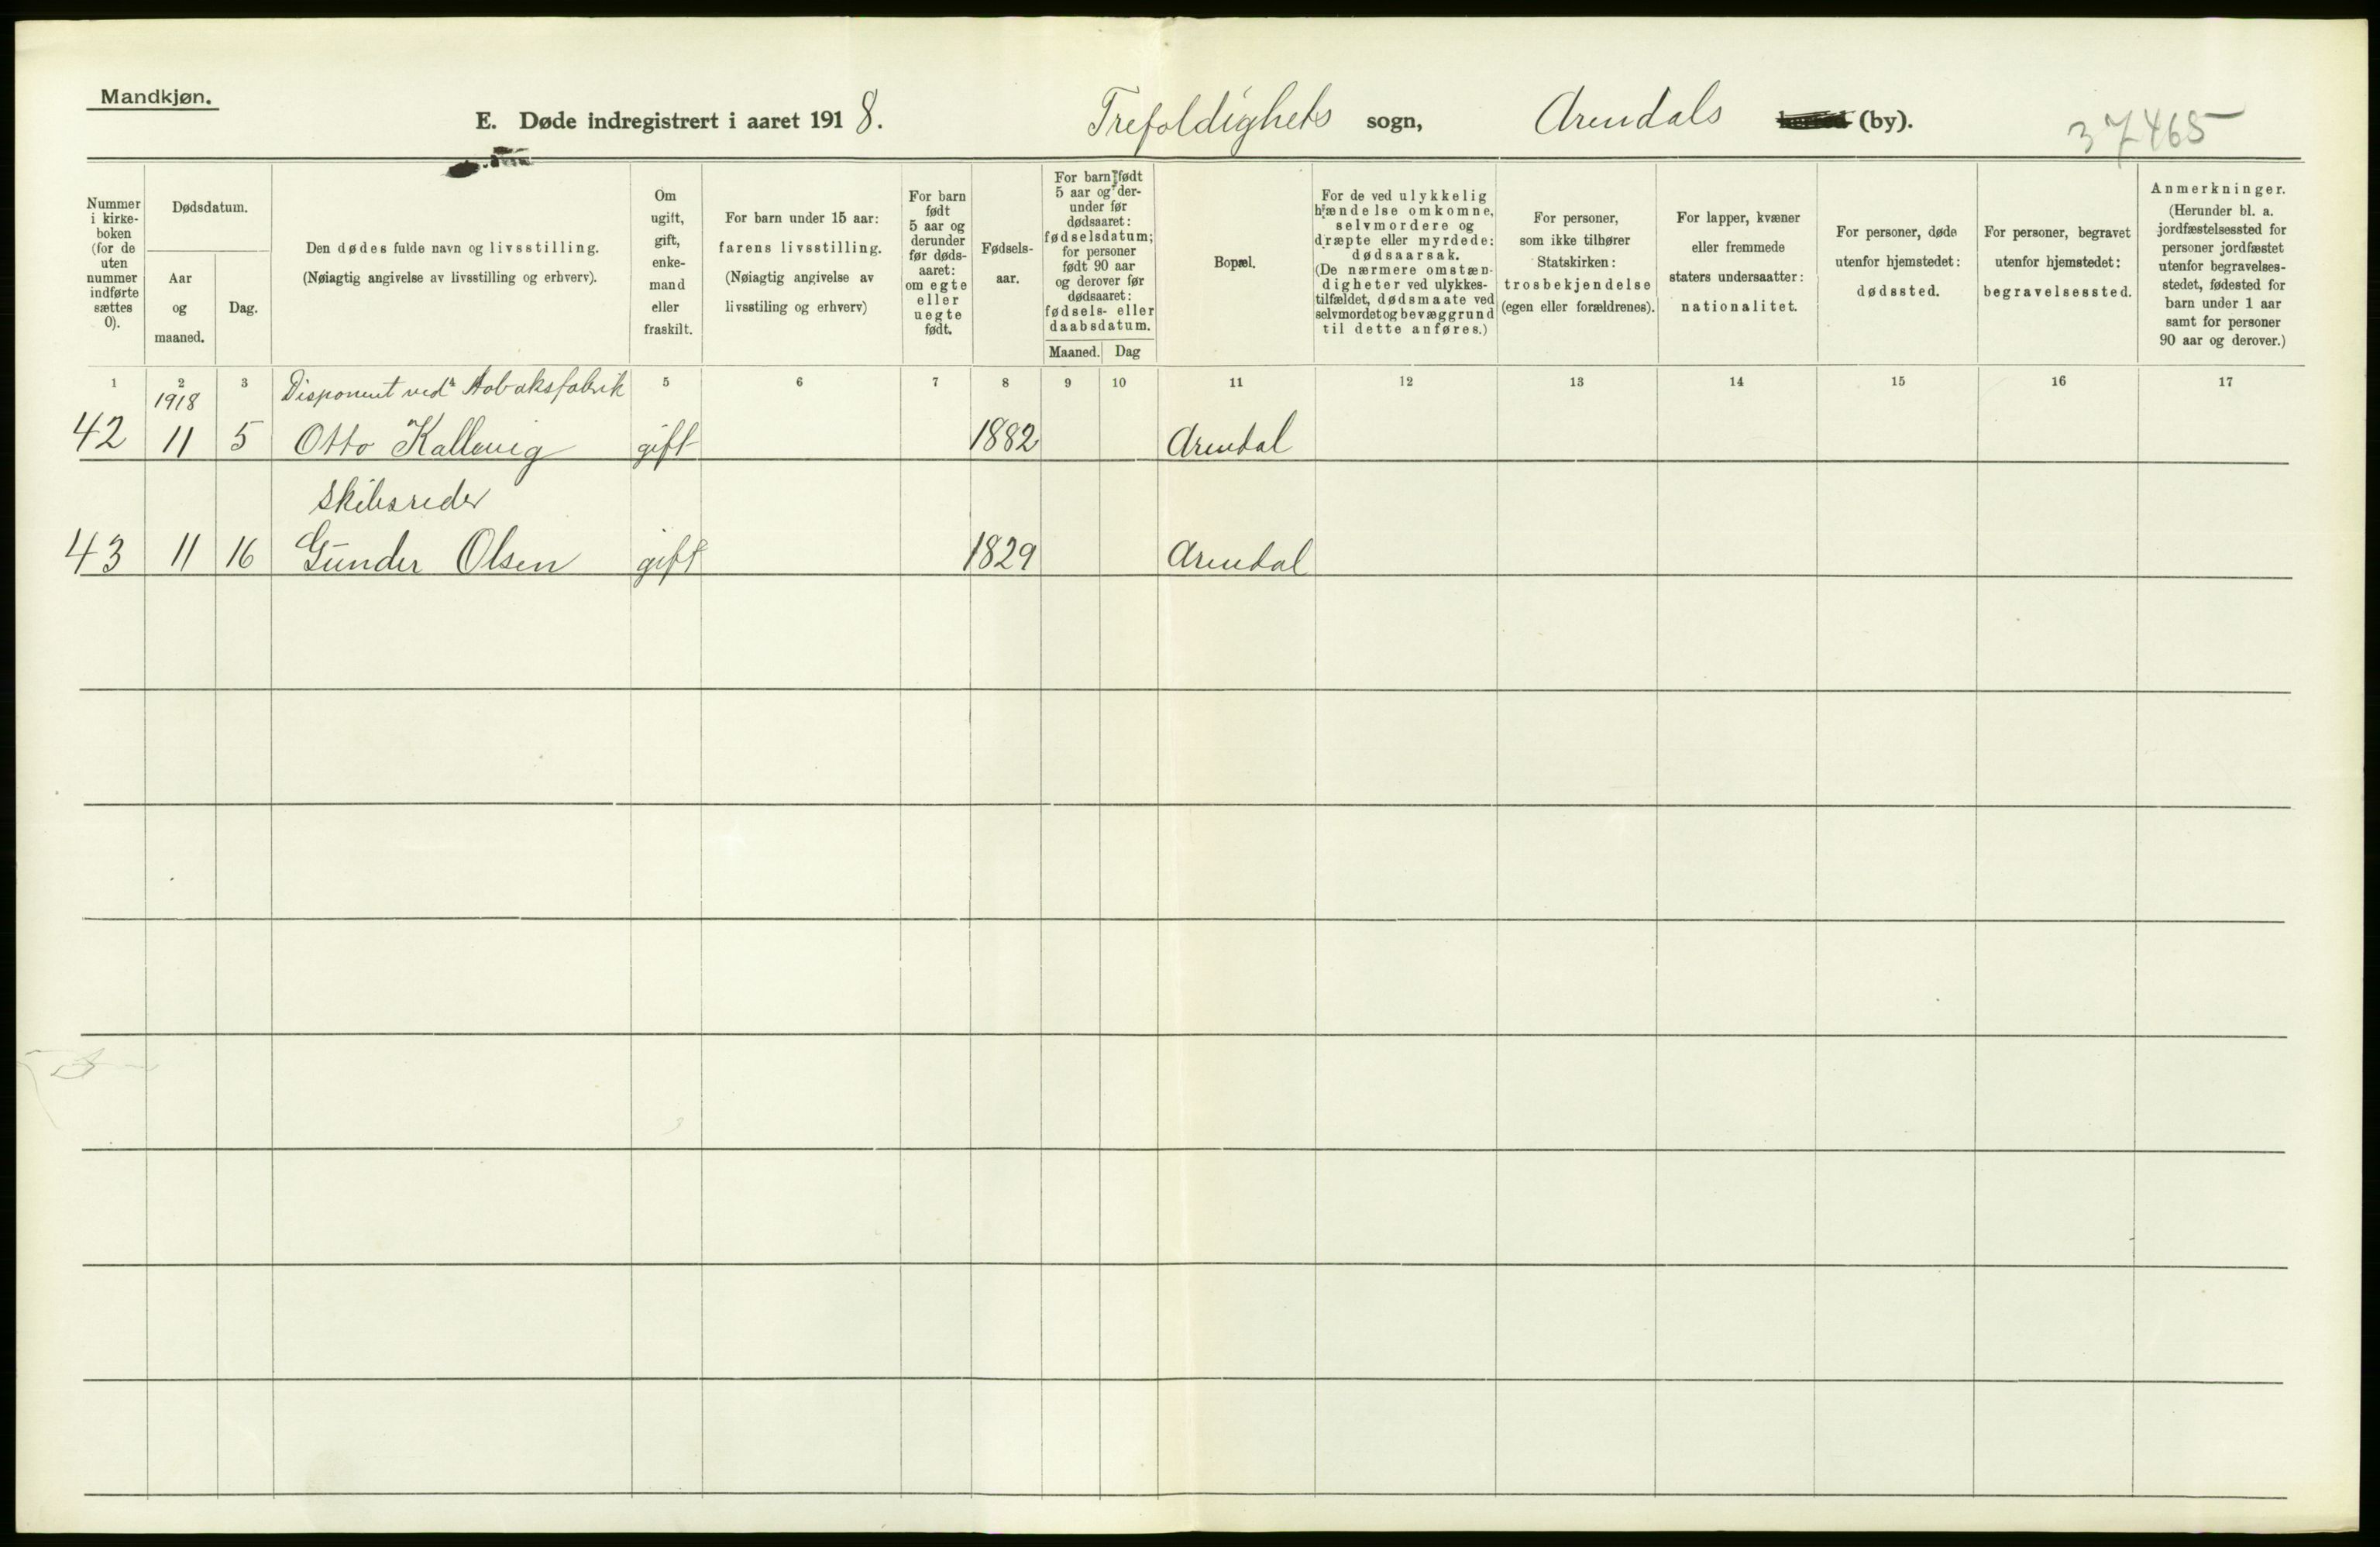 Mandkjøn.
E. Døde indregistrert i aaret 1918. Trefoldighets sogn, Arendals (by). 37465
Nummer i kirke-boken (for de uten nummer indførte sættes 0).
Dødsdatum.
Aar og maaned.
Dag.
Den dødes fulde navn og livsstilling.
(Nøiagtig angivelse av livsstilling og erhverv).
Om ugift, gift, enke-mand eller fraskilt.
For barn under 15 aar:
farens livsstilling.
(Nøiagtig angivelse av
livsstiling og erhverv)
For barn født 5 aar og derunder før døds-aaret: om egte eller uegte født.
Fødsels-aar.
For barn født 5 aar og der-under før dødsaaret: fødselsdatum; for personer født 90 aar og derover før dødsaaret: fødsels- eller daabsdatum.
Maaned. Dag
Bopæl.
For de ved ulykkelig hændelse omkomne, selvmordere og dræpte eller myrdede: dødsaarsak.
(De nærmere omstæn-digheter ved ulykkes-tilfældet, dødsmaate ved selvmordet og bevæggrund til dette anføres.)
For personer, som ikke tilhører Statskirken: trosbekjendelse (egen eller forældrenes).
For lapper, kvæner eller fremmede staters undersaatter: nationalitet.
For personer, døde utenfor hjemstedet: dødssted.
For personer, begravet utenfor hjemstedet: begravelsessted.
Anmerkninger.
(Herunder bl. a. jordfæstelsessted for personer jordfæstet utenfor begravelses-stedet, fødested for barn under 1 aar samt for personer 90 aar og derover.)
1 2 3 5 6 7 8 9 10 11 12 13 14 15 16 17
1918 Disponent ved Tobaksfabrik
42 11 5 Otto Kallevig gift 1882 Arendal
Skibsreder
43 11 16 Gunder Olsen gift 1829 Arendal